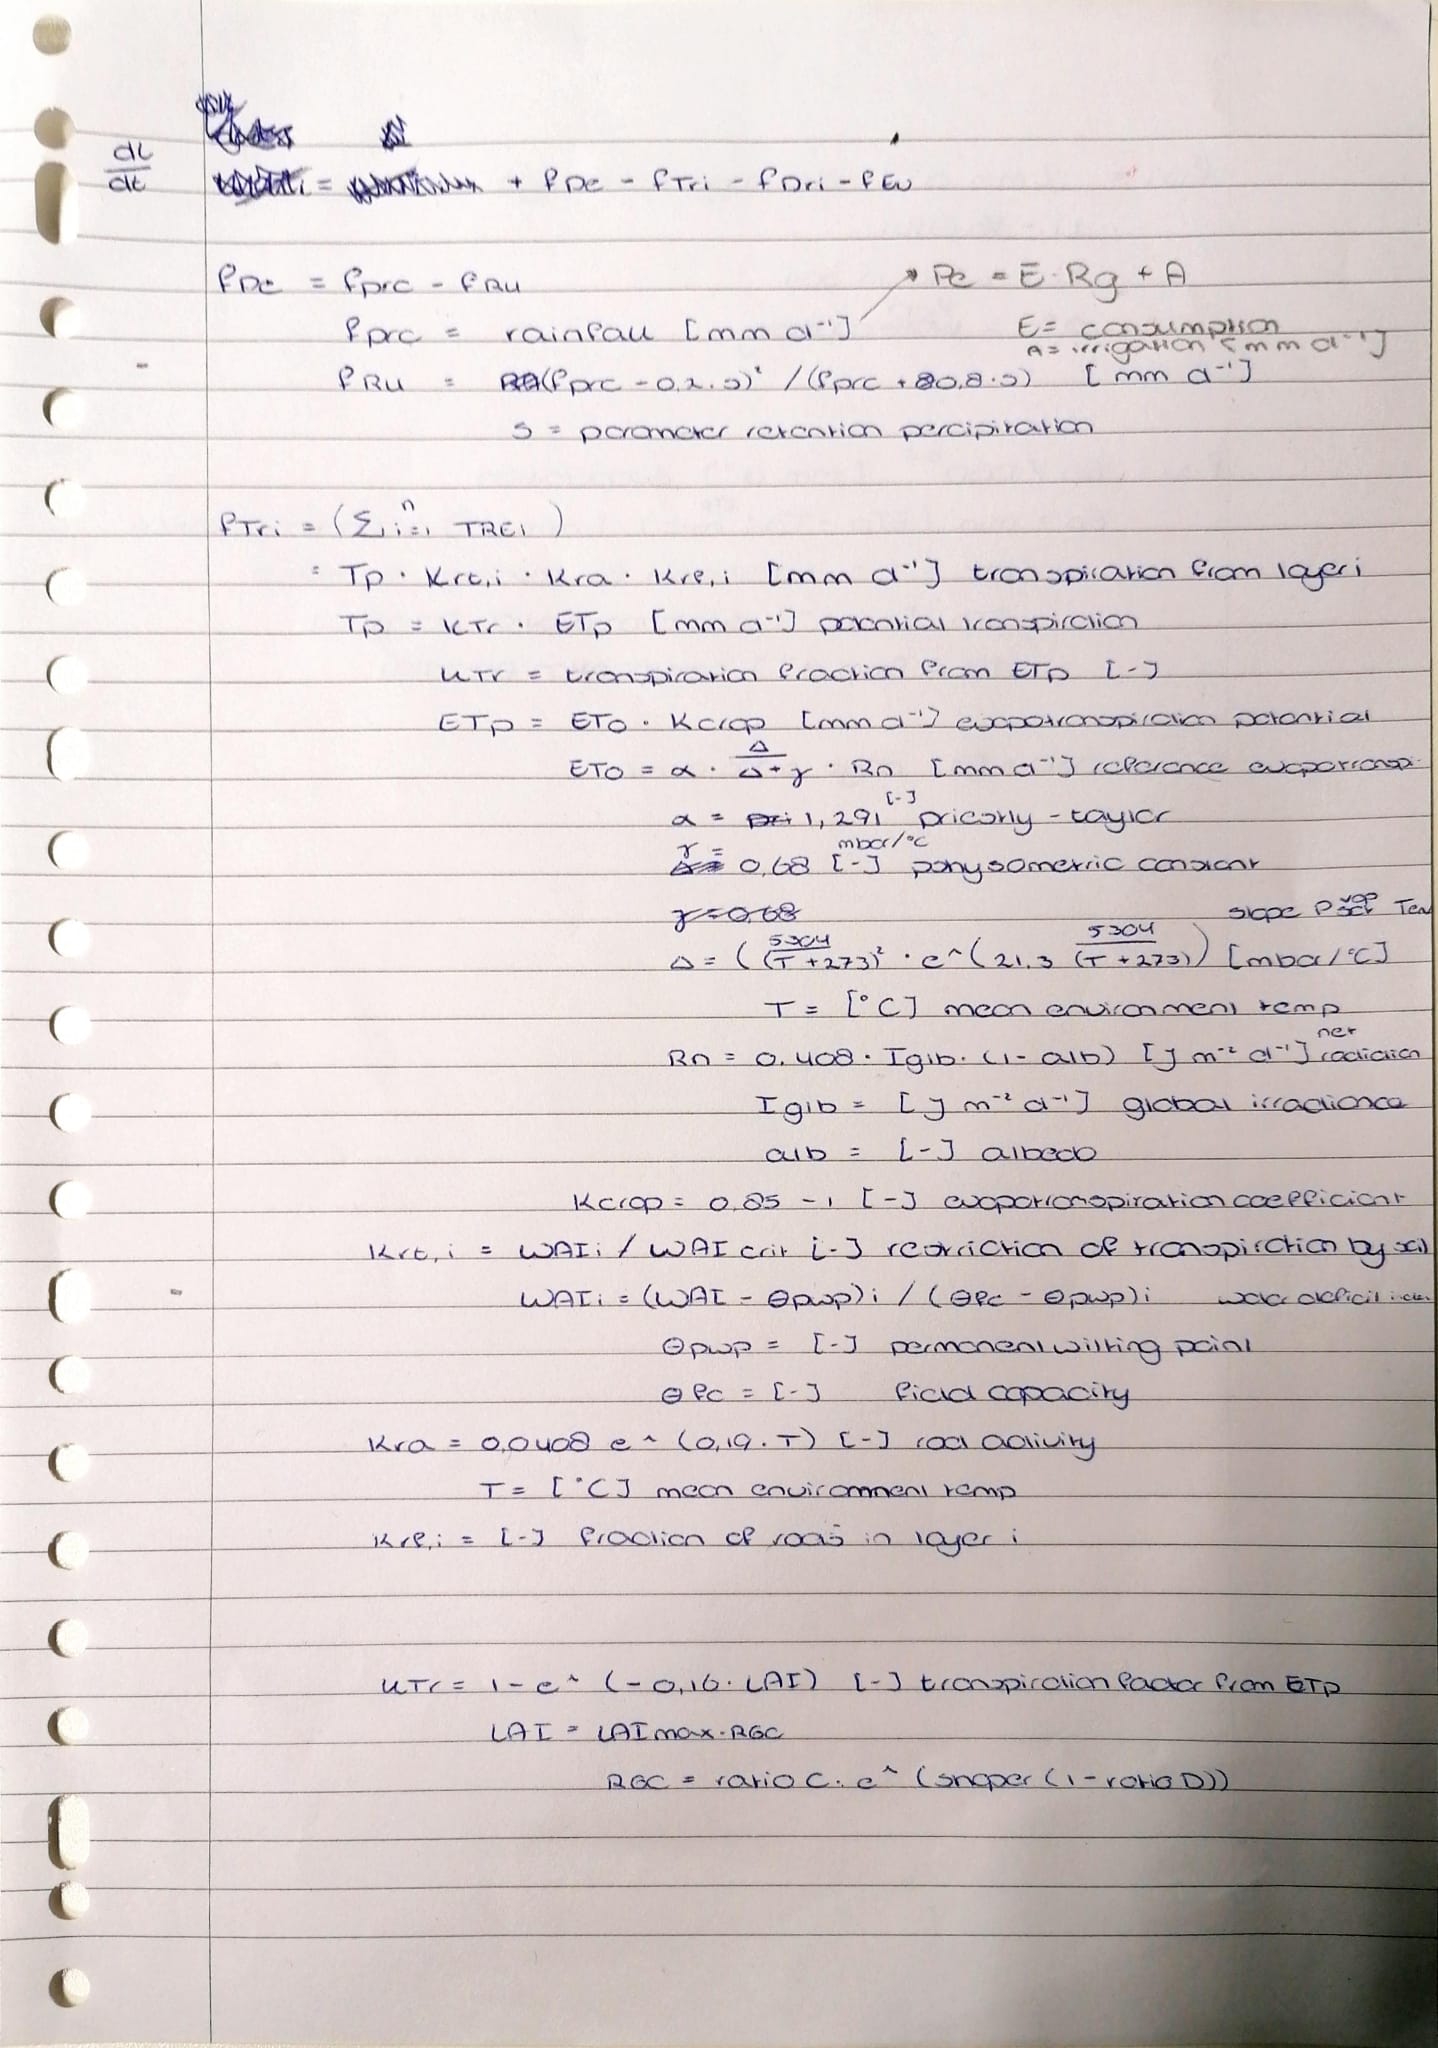 dL
dt
= + fPe - fTri - fDri - fEv
fPe = fprc - fRu
Pe = E · Rg + A
fprc = rainfall [mm d⁻¹]
E = consumption
A = irrigation [mm d⁻¹]
fRu = (fprc - 0,2 . S)² / (fprc + 0,8 . S) [mm d⁻¹]
S = parameter retention percipitation
fTri = (Σ i=1 n TREi)
= Tp · Krt,i · Kra · Krf,i [mm d⁻¹] transpiration from layer i
Tp = KTr · ETp [mm d⁻¹] potential transpiration
KTr = transpiration fraction from ETp [-]
ETp = ET0 · Kcrop [mm d⁻¹] evapotranspiration potential
ET0 = α · Δ/Δ+γ · Rn [mm d⁻¹] reference evapotransp.
α = 1,291 [-] priestly - taylor
γ = 0,68 [-] mbar/°C psnysometric constant
γ = 0,68
slope P vap sat Tem
Δ = (5304/(T+273)² · e^(21,3 5304/(T+273)) [mbar/°C]
T = [°C] mean environment temp
Rn = 0.408 · Iglb · (1 - alb) [J m⁻² d⁻¹] net radiation
Iglb = [J m⁻² d⁻¹] global irradiance
alb = [-] albedo
Kcrop = 0,85 - 1 [-] evapotranspiration coefficient
Krt,i = WAIi / WAI crit [-] restriction of transpiration by soil
WAIi = (WAI - θpwp)i / (θfc - θpwp)i water deficit index
θpwp = [-] permanent wilting point
θfc = [-] field capacity
Kra = 0,0408 e^(0,19 . T) [-] root activity
T = [°C] mean environment temp
Krf,i = [-] fraction of roots in layer i
KTr = 1 - e^(-0,16 · LAI) [-] transpiration factor from ETp
LAI = LAI max · RGC
RGC = ratio C · e^(shaper (1 - ratio D))